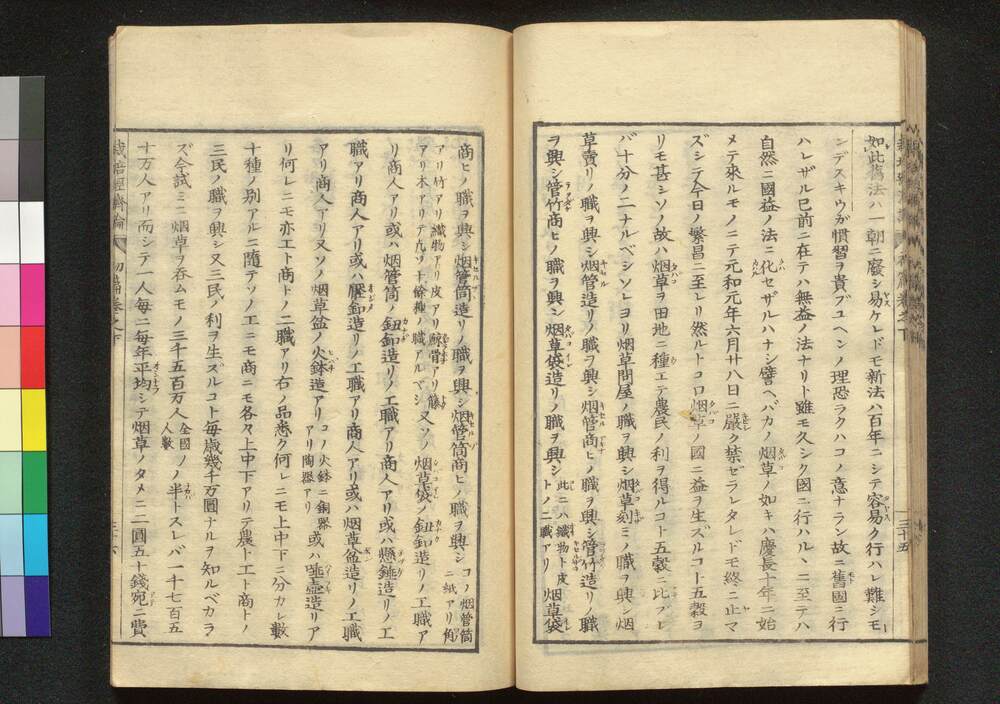 如此舊法ハ一朝ニ廢シ易ケレドモ新法ハ百年ニシテ容易ク行ハレ難シモ
ンデスキウガ慣習ヲ貴ブユヘンノ理恐ラクハコノ意ナラン故ニ舊國ニ行
ハレザル已前ニ在テハ無益ノ法ナリト雖モ久シク國ニ行ハルヽニ至テハ
自然ニ國益ノ法ニ化セザルハナシ譬ヘバカノ烟草ノ如キハ慶長十年ニ始
メテ來ルモノニテ元和元年六月廿八日ニ嚴ク禁ゼラレタレドモ終ニ止マ
ズシテ今日ノ繁昌ニ至レリ然ルトコロ烟草ノ國ニ益ヲ生ズルコト五穀ヨ
リモ甚シソノ故ハ烟草ヲ田地ニ種エテ農民ノ利ヲ得ルコト五穀ニ比ブレ
バ十分ノ二ナルベシソレヨリ烟草問屋ノ職ヲ興シ烟草刻ミノ職ヲ興シ烟
草賣リノ職ヲ興シ烟管造リノ職ヲ興シ烟管商ヒノ職ヲ興シ管竹造リノ職
ヲ興シ管竹商ヒノ職ヲ興シ烟草袋造リノ職ヲ興シ此ニハ織物ト皮トノ二職アリ烟草袋
三十五
商ヒノ職ヲ興シ烟管筒造リノ職ヲ興シ烟管筒商ヒノ職ヲ興シコノ烟管筒ニ紙アリ角
アリ竹アリ織物アリ皮アリ藤アリ木アリテ凡ソ十餘種ノ職アルベシ又ソノ烟草袋ノ鈕釦造リノ工職ア
リ商人アリ或ハ烟管筒ノ鈕釦造リノ工職アリ商人アリ或ハ懸錘造リノ工
職アリ商人アリ或ハ壓釦造リノ工職アリ商人アリ或ハ烟草盆造リノ工職
アリ商人アリ又ソノ烟草盆ノ火鉢造アリコノ火鉢ニ銅器アリ陶器アリ或ハ唾壺造リア
リ何レニモ亦工ト商トノ二職アリ右ノ品悉ク何レニモ上中下ニ分カレ數
十種ノ別アルニ隨テソノ工ニモ商ニモ各々上中下アリテ農ト工ト商トノ
三民ノ職ヲ興シ又三民ノ利ヲ生ズルコト毎歳幾千万圓ナルヲ知ルベカラ
ズ今試ミニ烟草ヲ呑ムモノ三千五百万人全國ノ人數ノ半トスレバ一千七百五
十万人アリ而シテ一人毎ニ毎年平均シテ烟草ノタメニ二圓五十錢宛ニ費
栽培經濟論 初篇卷之下 三十六